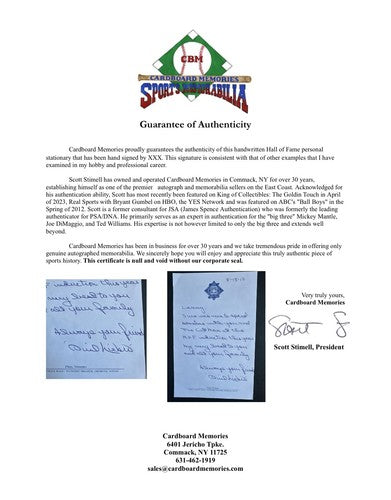 CBM
CARDBOARD MEMORIES
SPORTS MEMORABILIA
Guarantee of Authenticity
Cardboard Memories proudly guarantees the authenticity of this handwritten Hall of Fame personal
stationary that has been hand signed by XXX. This signature is consistent with that of other examples that I have
examined in my hobby and professional career.
Scott Stimell has owned and operated Cardboard Memories in Commack, NY for over 30 years,
establishing himself as one of the premier autograph and memorabilia sellers on the East Coast. Acknowledged for
his authentication ability, Scott has most recently been featured on King of Collectibles: The Goldin Touch in April
of 2023, Real Sports with Bryant Gumbel on HBO, the YES Network and was featured on ABC's "Ball Boys" in the
Spring of 2012. Scott is a former consultant for JSA (James Spence Authentication) who was formerly the leading
authenticator for PSA/DNA. He primarily serves as an expert in authentication for the "big three" Mickey Mantle,
Joe DiMaggio, and Ted Williams. His expertise is not however limited to only the big three and extends well
beyond.
Cardboard Memories has been in business for over 30 years and we take tremendous pride in offering only
genuine autographed memorabilia. We sincerely hope you will enjoy and appreciate this truly authentic piece of
sports history. This certificate is null and void without our corporate seal.
Very truly yours,
Cardboard Memories
Scott S
Scott Stimell, President
induction this year
you
and your family
Always your friend
Larry
you and
this year
to you
and your family
Always your friend
Cardboard Memories
6401 Jericho Tpke.
Commack, NY 11725
631-462-1919
sales@cardboardmemories.com